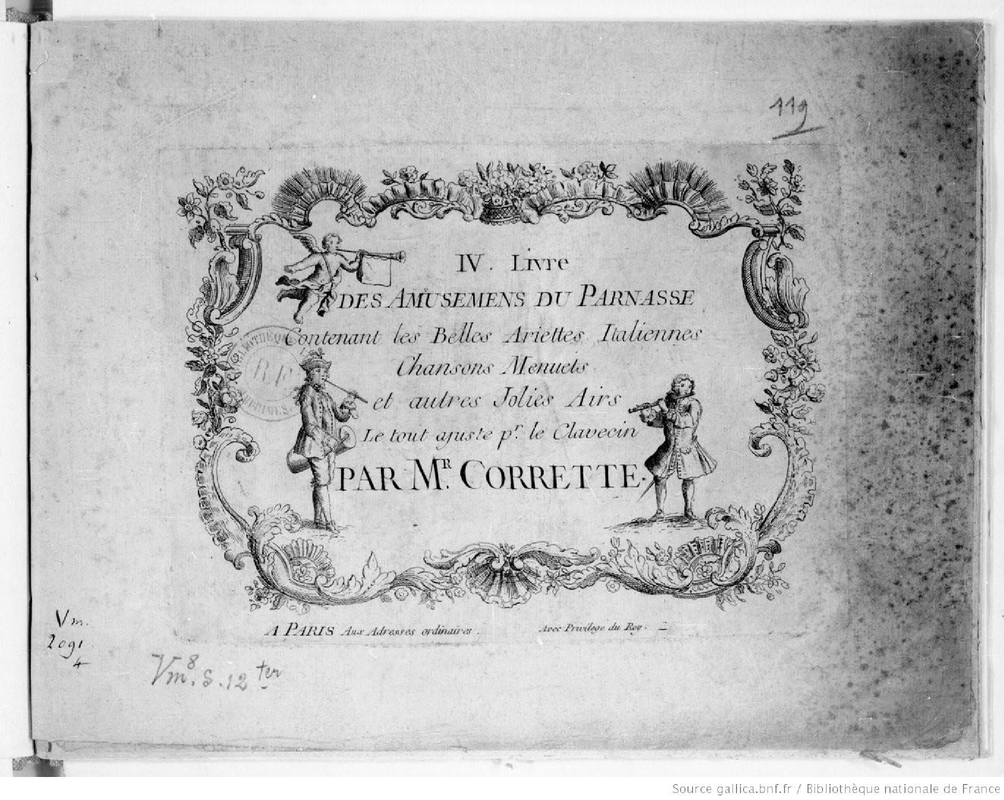 119
IV. Livre
DES AMUSEMENS DU PARNASSE
Contenant les Belles Ariettes Italiennes
Chansons Menuets
et autres Jolies Airs
Le tout ajuste pr. le Clavecin
PAR MR. CORRETTE.
A PARIS Aux Adresses ordinaires.
Avec Privilege du Roy.
Vm.
2091
4
Vm8. S. 12 ter
Source gallica.bnf.fr / Bibliothèque nationale de France